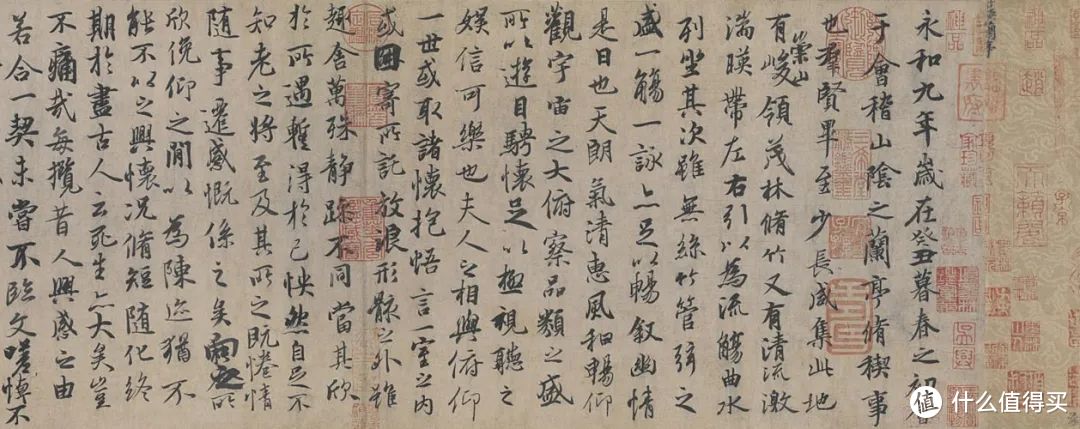 永和九年歲在癸丑暮春之初會
于會稽山陰之蘭亭脩稧事
也羣賢畢至少長咸集此地
有崇山峻領茂林脩竹又有清流激
湍暎帶左右引以為流觴曲水
列坐其次雖無絲竹管弦之
盛一觴一詠亦足以暢叙幽情
是日也天朗氣清惠風和暢仰
觀宇宙之大俯察品類之盛
所以遊目騁懷足以極視聽之
娛信可樂也夫人之相與俯仰
一世或取諸懷抱悟言一室之內
或因寄所託放浪形骸之外雖
趣舍萬殊静躁不同當其欣
於所遇蹔得於己怏然自足不
知老之將至及其所之既惓情
隨事遷感慨係之矣向之所
欣俛仰之閒以為陳迹猶不
能不以之興懷況脩短隨化終
期於盡古人云死生亦大矣豈
不痛哉每攬昔人興感之由
若合一契未嘗不臨文嗟悼不
值 什么值得买